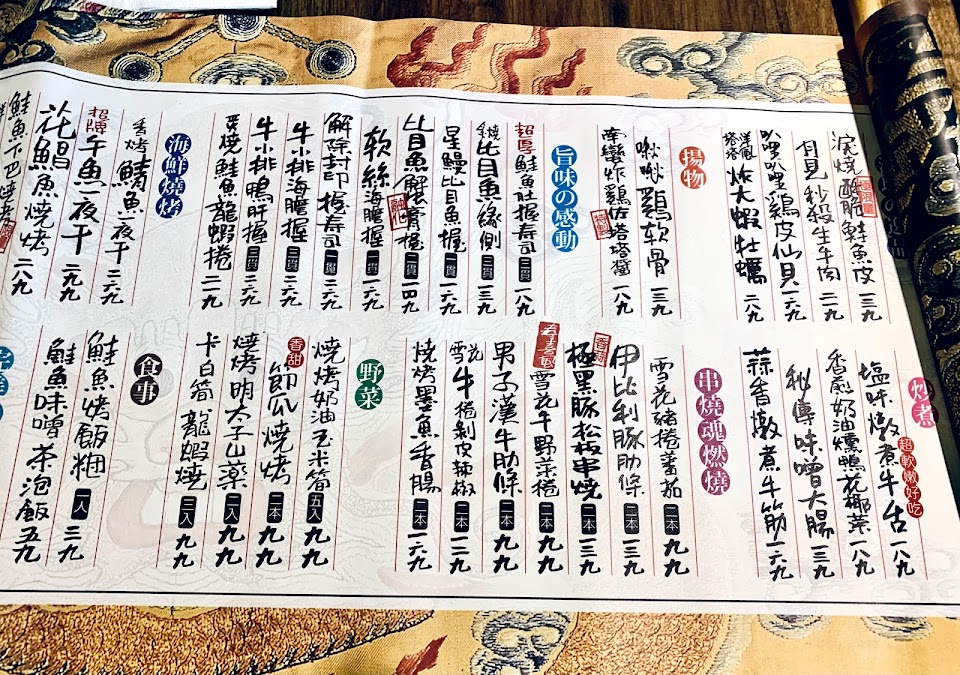 酸脆鮭魚皮 一三九
秒殺生牛肉 二一九
趴哩趴哩雞皮仙貝 一六九
洋風塔塔炸大蝦牡蠣 二八九
揚物
啾啾雞軟骨 一三九
南蠻炸雞佐塔塔醬 特製 一八九
旨味の感動
超厚鮭魚肚握壽司 二貫 一八九
炙燒比目魚緣側 二貫 一三九
星鰻比目魚握 一貫 一六九
比目魚蟹膏握 二貫 一四九
軟絲海膽握 一貫 一六九
解除封印握壽司 一貫 二六九
牛小排海膽握 二貫 二六九
牛小排鴨肝握 二貫 二六九
炙燒鮭魚龍蝦捲 二一九
海鮮燒烤
香烤鯖魚一夜干 二六九
午魚一夜干 二九九
花鯧魚燒烤 二八九
鮭魚下巴鹽烤
炒煮
塩味燉煮牛舌 超軟嫩好吃 一八九
香煎奶油燻鴨花椰菜 一八九
秘傳味噌大腸 一三九
蒜香燉煮牛筋 一六九
串燒魂燃燒
雪花豬捲蕃茄 二本 九九
伊比利豚肋條 二本 一三九
極黑豚松板串燒 二本 一三九
雪花牛野菜捲 二本 九九
男子漢牛肋條 二本 九九
雪花牛捲剝皮辣椒 二本 一二九
燒烤墨魚香腸 二本 一六九
野菜
燒烤奶油玉米筍 五入 九九
香甜節瓜燒烤 二本 九九
燒烤明太子山藥 二入 九九
卡白筍龍蝦燒 三入 九九
食事
鮭魚烤飯糰 一入 三九
鮭魚味噌茶泡飯 五九